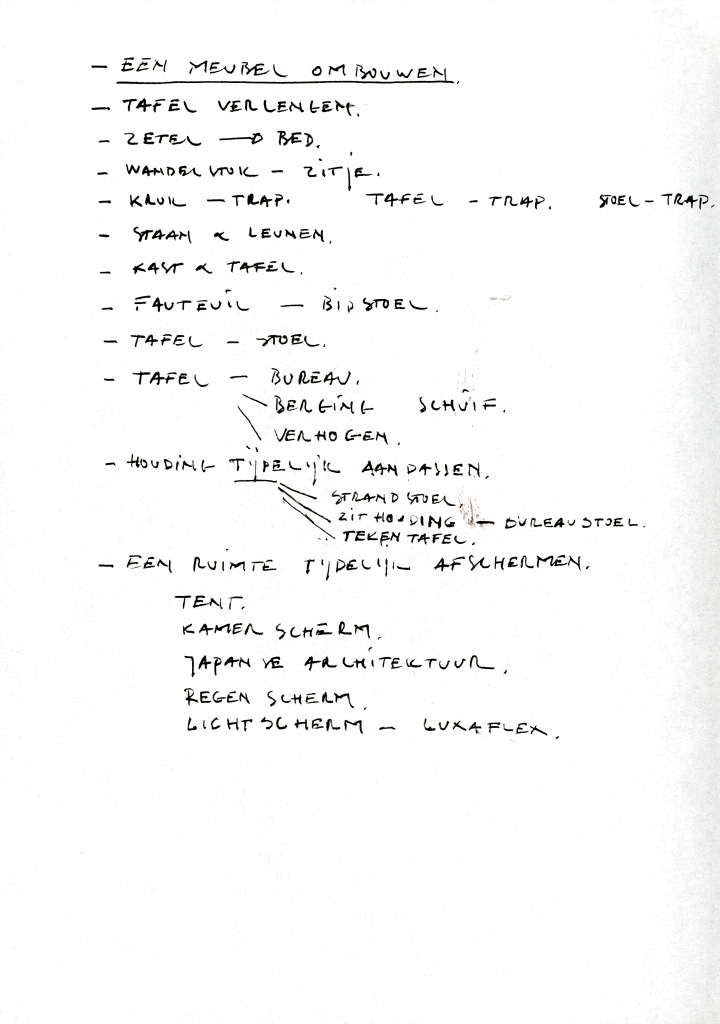 - EEN MEUBEL OMBOUWEN.
- TAFEL VERLENGEN.
- ZETEL → BED.
- WANDELSTUK - ZITJE.
- KRUK - TRAP. TAFEL - TRAP. STOEL - TRAP.
- STAAN & LEUNEN.
- KAST & TAFEL.
- FAUTEUIL - BIDSTOEL.
- TAFEL - STOEL.
- TAFEL - BUREAU.
BERGING SCHUIF.
VERHOGEN.
- HOUDING TIJDELIJK AANPASSEN.
STRANDSTOEL.
ZITHOUDING - BUREAUSTOEL.
TEKENTAFEL.
- EEN RUIMTE TIJDELIJK AFSCHERMEN.
TENT.
KAMERSCHERM.
JAPANSE ARCHITEKTUUR.
REGENSCHERM.
LICHTSCHERM - LUXAFLEX.